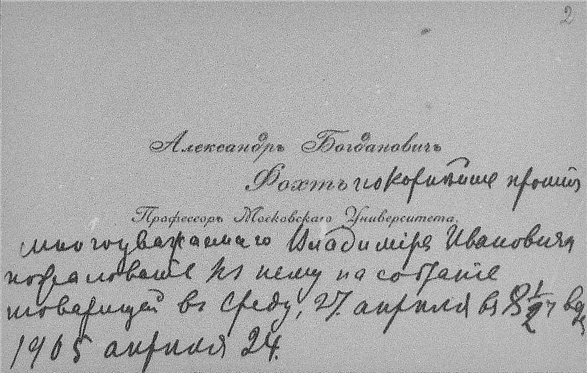 2
Александръ Богдановичъ
Фохтъ покорнѣйше проситъ
Профессоръ Московскаго Университета.
многоуважаемаго Владиміра Ивановича
пожаловать къ нему на собраніе
товарищей въ среду, 27 апрѣля въ 8 1/2 ч
1905 апрѣля 24.